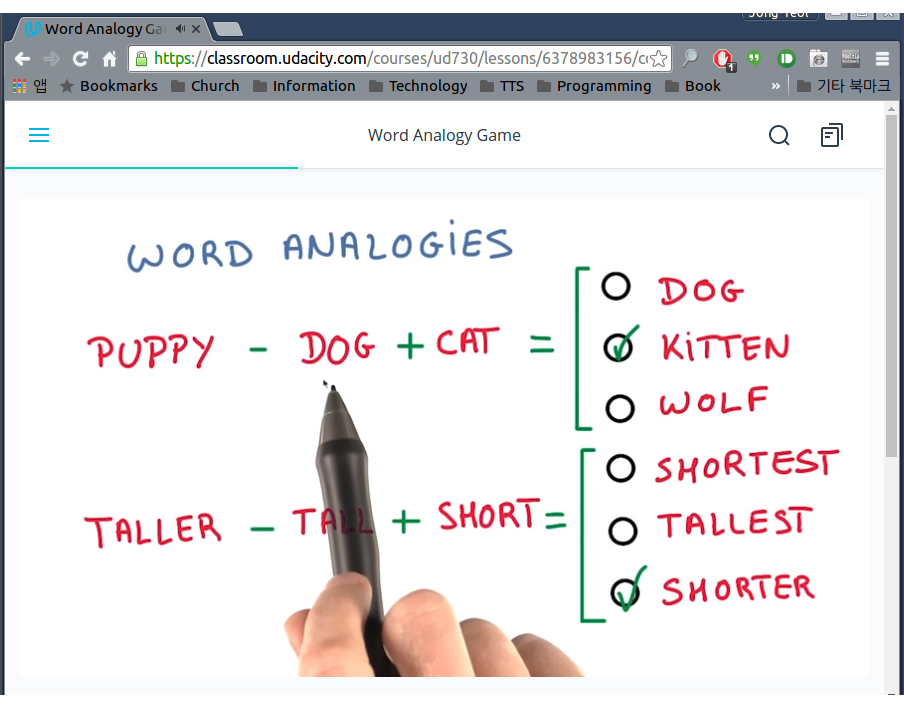 Word Analogy Ga
https://classroom.udacity.com/courses/ud730/lessons/6378983156/c
앱 Bookmarks Church Information Technology TTS Programming Book » 기타 북마크
Word Analogy Game
WORD ANALOGIES
PUPPY - DOG + CAT =
DOG
KITTEN
WOLF
TALLER - TALL + SHORT =
SHORTEST
TALLEST
SHORTER